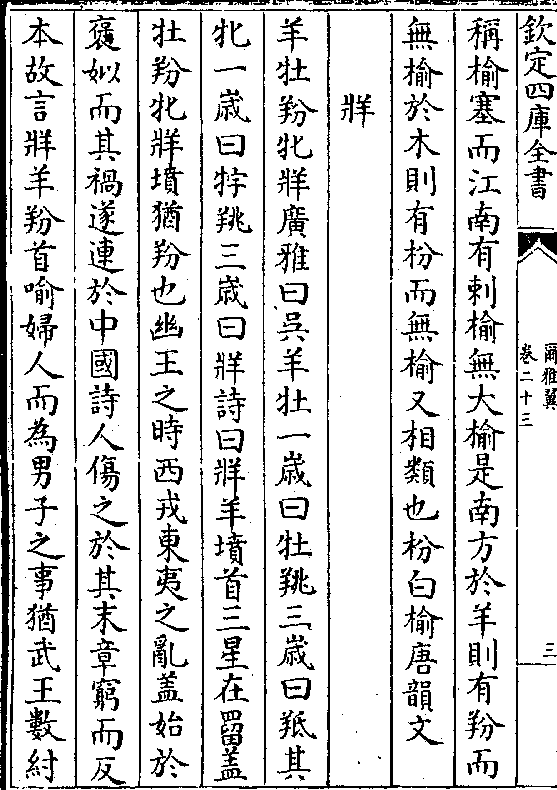 欽定四庫全書
爾雅翼
卷二十三
三
稱榆塞而江南有刺榆無大榆是南方於羊則有羒而
無榆於木則有枌而無榆又相類也枌白榆唐韻文
牂
羊牡羒牝牂廣雅曰吳羊牡一嵗曰牡𦍩三嵗曰羝其
牝一嵗曰牸𦍩三嵗曰牂詩曰牂羊墳首三星在罶盖
牡羒牝牂墳猶羒也幽王之時西戎東夷之亂盖始於
褒姒而其禍遂連於中國詩人傷之於其末章窮而反
本故言牂羊羒首喻婦人而為男子之事猶武王數紂